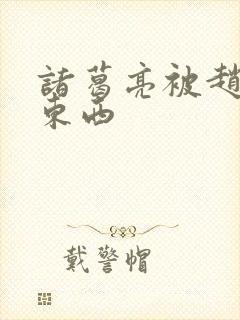 諸葛亮被趙
東西
戴警帽